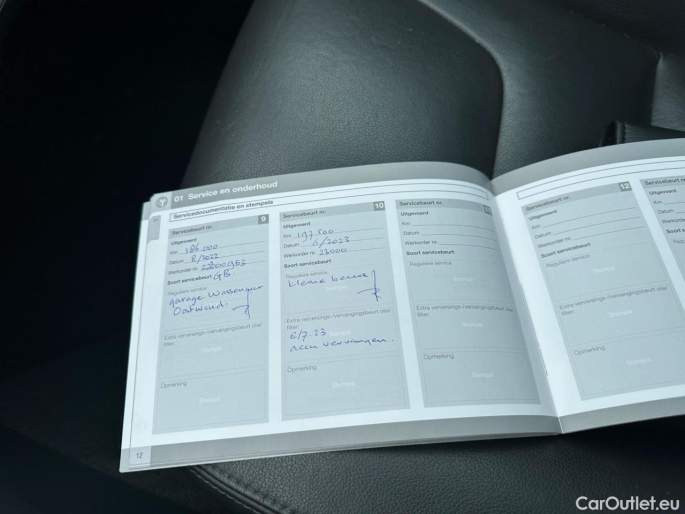 01 Service en onderhoud
Servicedocumentatie en stempels
Servicebeurt nr. 9
Uitgevoerd
Km 186.000
Datum 8/2022
Werkorder nr.
Soort servicebeurt GB
Reguliere service
garage Wassenaar
Oostwoud.
Extra verversings-/vervangingsbeurt olie/
filter
Stempel
Opmerking
Stempel
Servicebeurt nr. 10
Uitgevoerd
Km 197.500
Datum 6/2023
Werkorder nr. 23000
Soort servicebeurt
Reguliere service
kleine beurt
Extra verversings-/vervangingsbeurt olie/
filter
6/7-23
Opmerking
Stempel
Servicebeurt nr.
Uitgevoerd
Km
Datum
Werkorder nr.
Soort servicebeurt
Reguliere service
Stempel
Extra verversings-/vervangingsbeurt olie/
filter
Stempel
Opmerking
Stempel
Servicebeurt nr. 12
Uitgevoerd
Km
Datum
Werkorder nr.
Soort servicebeurt
Reguliere service
Extra verversings-/vervangingsbeurt olie/
filter
Opmerking
Servicebeurt nr.
Uitgevoerd
Km
Datum
12
CarOutlet.eu